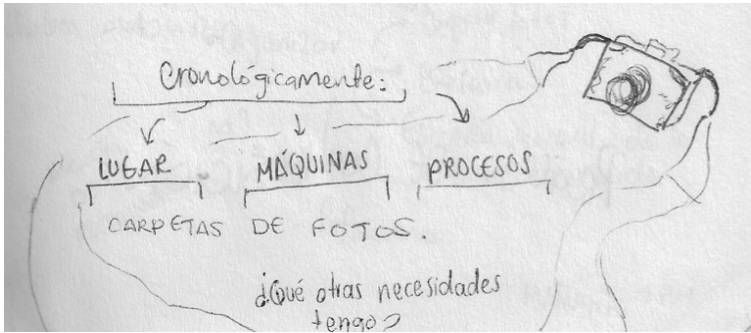 Cronológicamente:
LUGAR MÁQUINAS PROCESOS
CARPETAS DE FOTOS.
¿Qué otras necesidades
tengo?